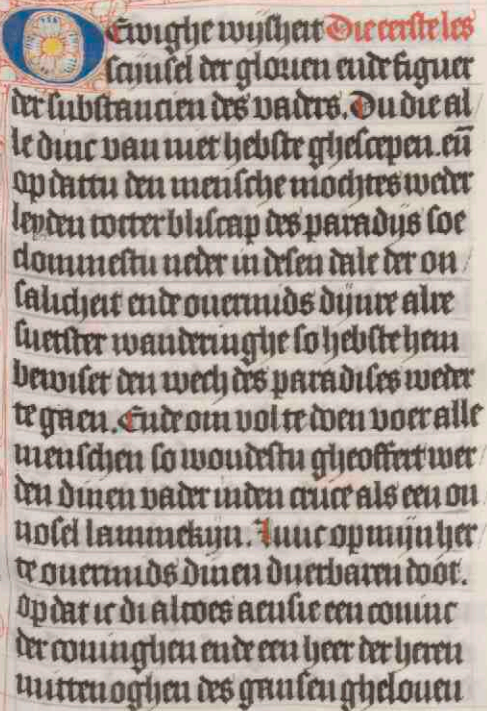 O Ewighe wijsheit Die eerste les
scijnsel der glorien ende figuer
der substancien des vaders. Du die al
le dinc van niet hebste ghescepen. eñ
op dattu den mensche mochtes weder
leyden totter bliscap des paradijs soe
clommestu neder in desen dale der on
salicheit ende ouermids dijnre alre
suetster wanderinghe so hebste hem
bewiset den wech des paradises weder
te gaen. Ende om vol te doen voer alle
menschen so woudestu gheoffert wer
den dinen vader inden cruce als een on
nosel lammekijn. Junc op mijn her
te ouermids dinen duerbaren doot.
Op dat ic di altoes aensie een coninc
der coninghen ende een heer der heren
mitten oghen des gansen ghelouen